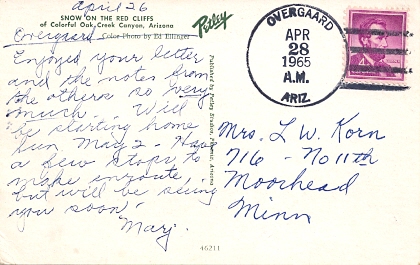 april 26
SNOW ON THE RED CLIFFS
of Colorful Oak Creek Canyon, Arizona
Overgaard
Color Photo by Ed Ellinger
Enjoyed your letter
and the notes from
the others so very
much. Will
be starting home
Sun May 2 - Have
a few stops to
make enroute
but will be seeing
you soon.
Marj.
Petley
Published by Petley Studios, Phoenix, Arizona
OVERGAARD
APR
28
1965
A.M.
ARIZ.
Mrs. L W. Korn
716 - No 11th
Moorhead
Minn
46211